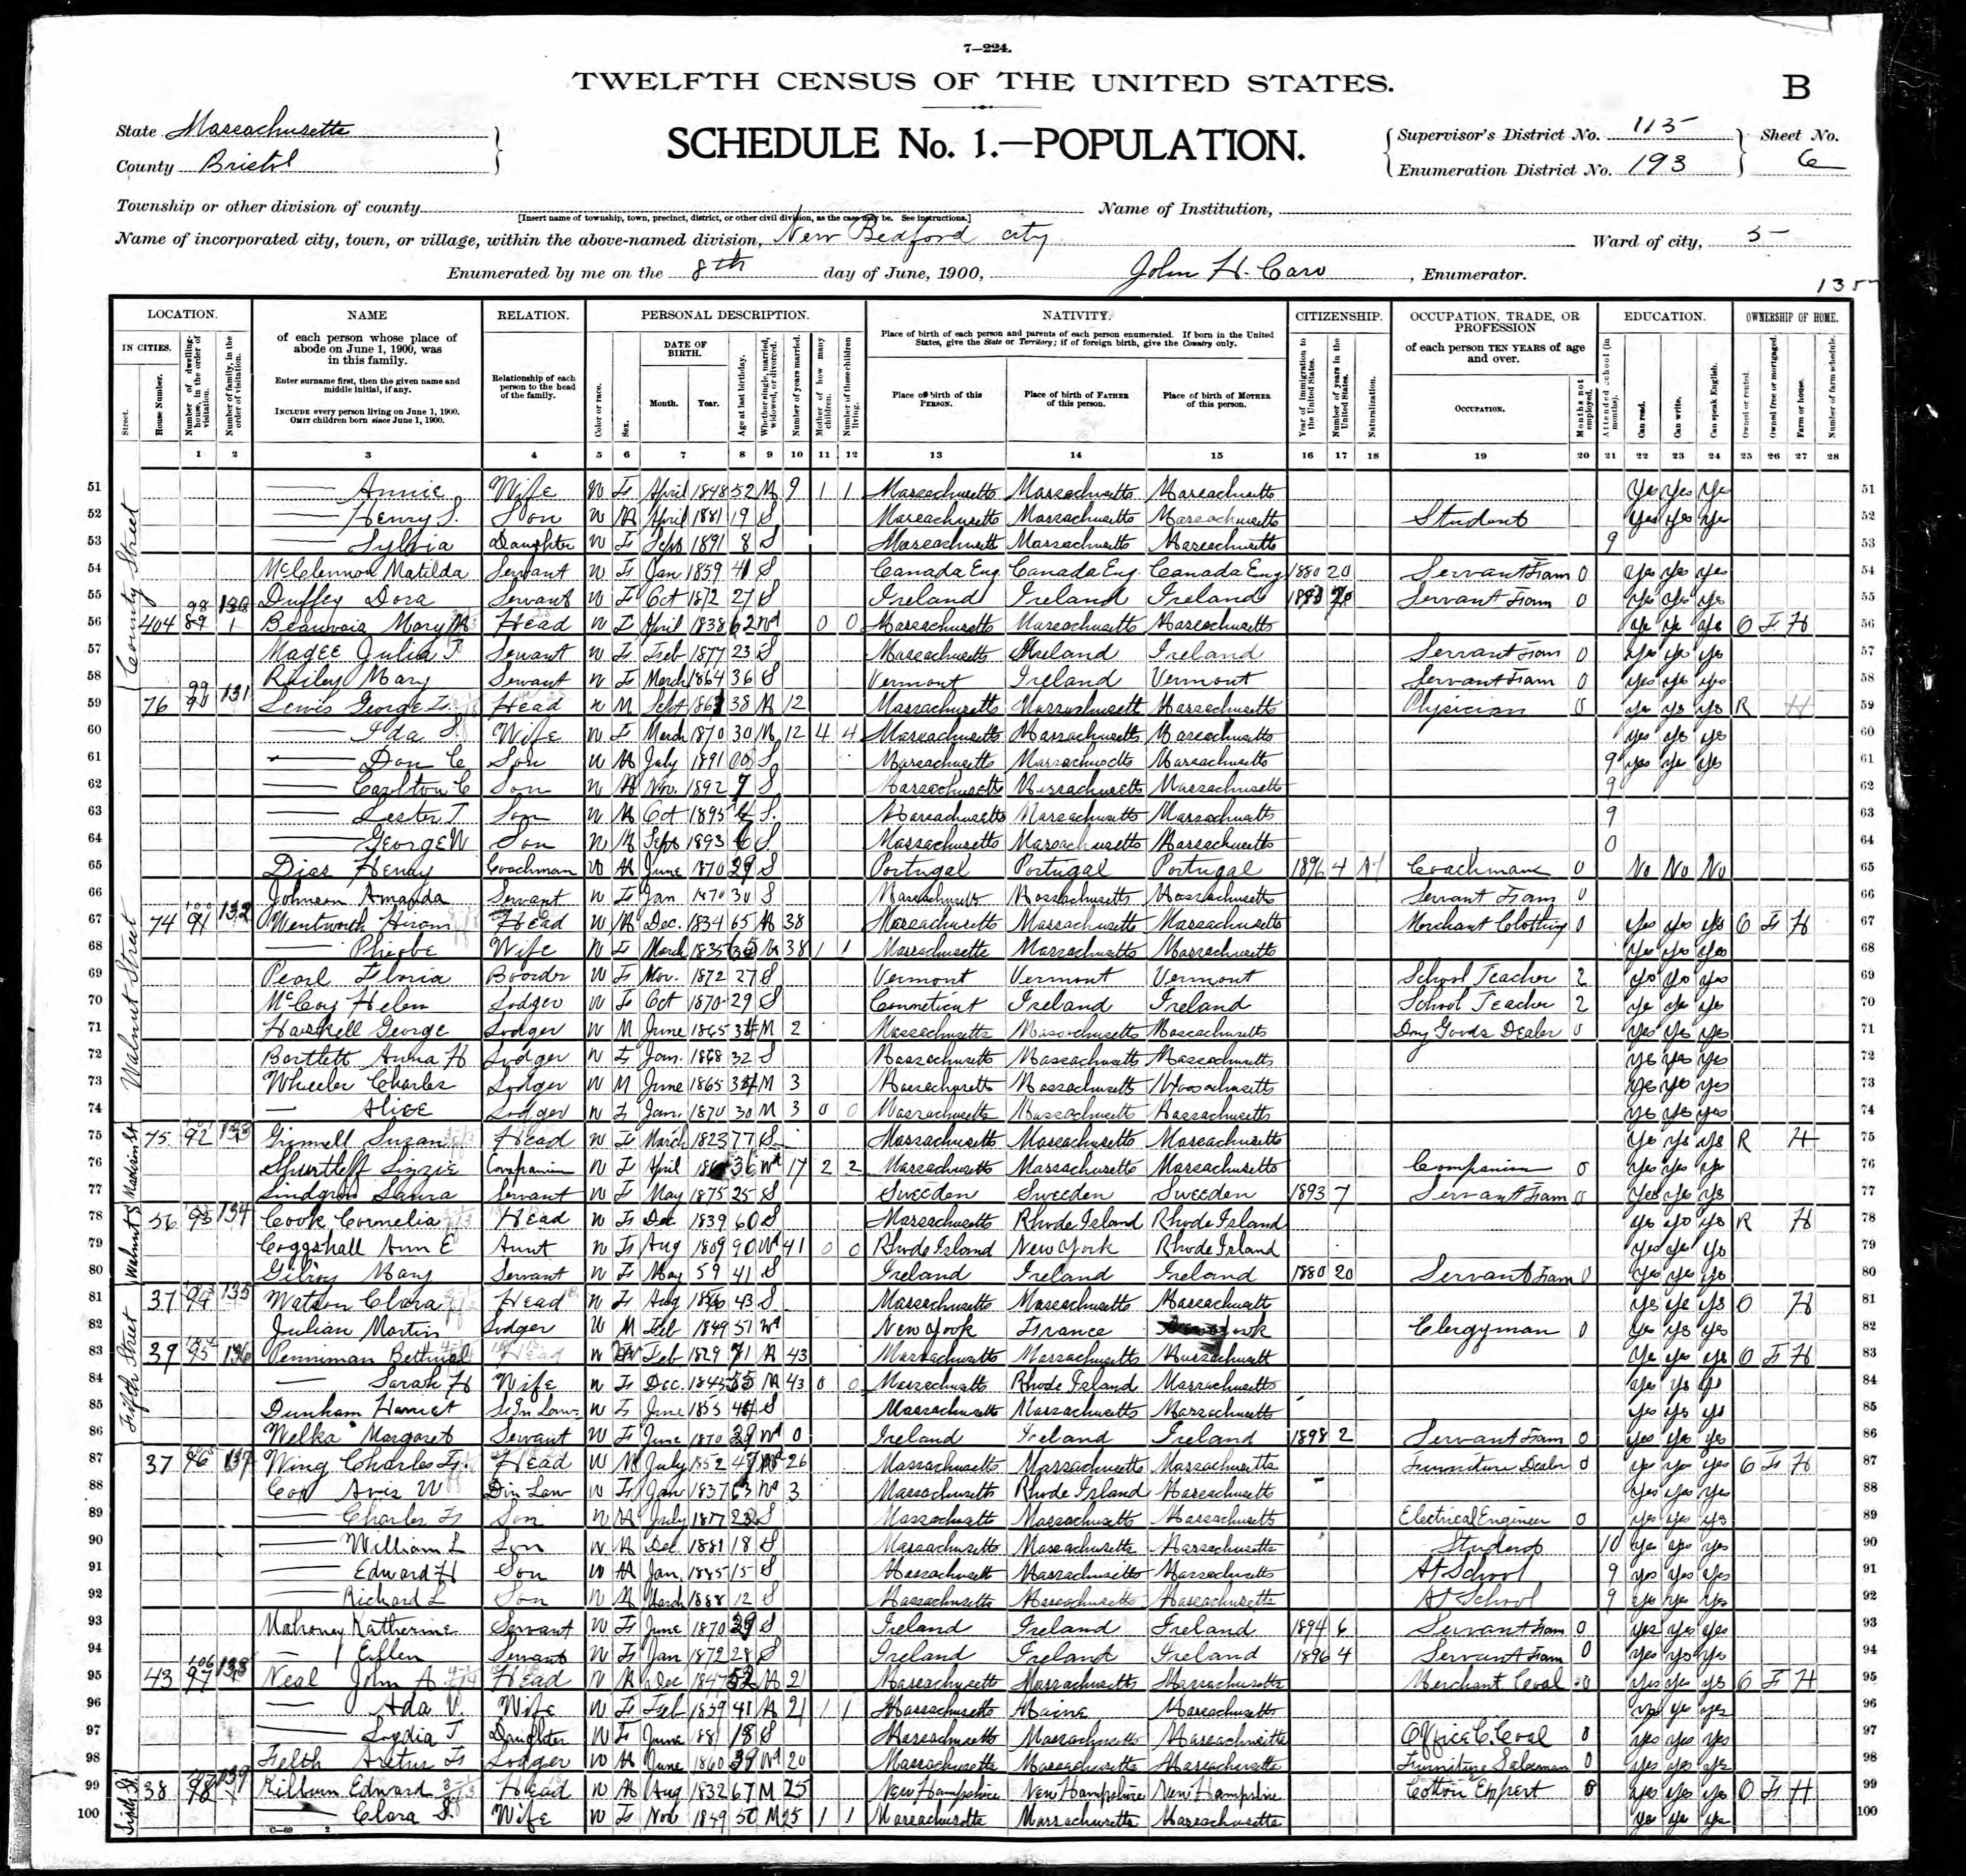 7—224.
TWELFTH CENSUS OF THE UNITED STATES.
B
State Massachusetts
County Bristol
SCHEDULE No. 1.—POPULATION.
Supervisor's District No. 115
Enumeration District No. 193
Sheet No. 6
Township or other division of county
[Insert name of township, town, precinct, district, or other civil division, as the case may be. See instructions.]
Name of Institution,
Name of incorporated city, town, or village, within the above-named division, New Bedford city
Ward of city, 5
Enumerated by me on the 8th day of June, 1900, John H. , Enumerator.
135
LOCATION. NAME RELATION. PERSONAL DESCRIPTION. NATIVITY. CITIZENSHIP. OCCUPATION, TRADE, OR PROFESSION EDUCATION. OWNERSHIP OF HOME.
IN CITIES.
Street.
House Number.
Number of dwelling-house, in the order of visitation.
Number of family, in the order of visitation.
of each person whose place of abode on June 1, 1900, was in this family.
Enter surname first, then the given name and middle initial, if any.
INCLUDE every person living on June 1, 1900.
OMIT children born since June 1, 1900.
Relationship of each person to the head of the family.
Color or race.
Sex.
DATE OF BIRTH.
Month. Year.
Age at last birthday.
Whether single, married, widowed, or divorced.
Number of years married.
Mother of how many children.
Number of these children living.
Place of birth of each person and parents of each person enumerated. If born in the United States, give the State or Territory; if of foreign birth, give the Country only.
Place of birth of this PERSON.
Place of birth of FATHER of this person.
Place of birth of MOTHER of this person.
Year of immigration to the United States.
Number of years in the United States.
Naturalization.
of each person TEN YEARS of age and over.
OCCUPATION.
Months not employed.
Attended school (in months).
Can read.
Can write.
Can speak English.
Owned or rented.
Owned free or mortgaged.
Farm or house.
Number of farm schedule.
1 2 3 4 5 6 7 8 9 10 11 12 13 14 15 16 17 18 19 20 21 22 23 24 25 26 27 28
County Street
51 — Annie Wife W F April 1848 52 M 9 1 1 Massachusetts Massachusetts Massachusetts Yes Yes Yes 51
52 — Henry S. Son W M April 1881 19 S Massachusetts Massachusetts Massachusetts Student Yes Yes Yes 52
53 — Sylvia Daughter W F Sept 1891 8 S Massachusetts Massachusetts Massachusetts 9 53
54 McClennon Matilda Servant W F Jan 1859 41 S Canada Eng Canada Eng. Canada Eng 1880 20 Servant Fam 0 Yes Yes Yes 54
55 Duffey Dora Servant W F Oct 1872 27 S Ireland Ireland Ireland Servant Fam 0 Yes Yes Yes 55
56 404 Beauvais Mary Head W F April 1838 62 Wd 0 0 Massachusetts Massachusetts Massachusetts Yes Yes Yes O F H 56
57 Magee Julia F Servant W F Feb 1877 23 S Massachusetts Ireland Ireland Servant Fam 0 Yes Yes Yes 57
58 Railey Mary Servant W F March 1864 36 S Vermont Ireland Vermont Servant Fam 0 Yes Yes Yes 58
59 76 99 131 Lewis George F. Head W M Sept 38 M 12 Massachusetts Massachusetts Massachusetts Physician 0 Yes Yes Yes R H 59
Walnut Street
60 — Ida Wife W F March 1870 30 M 12 4 4 Massachusetts Massachusetts Massachusetts Yes Yes Yes 60
61 — Don C Son W M July 1891 S Massachusetts Massachusetts Massachusetts 9 Yes Yes Yes 61
62 — Carlton C Son W M Nov. 1892 7 S Massachusetts Massachusetts Massachusetts 9 62
63 — Lester T. Son W M Oct 1895 4 S. Massachusetts Massachusetts Massachusetts 9 63
64 — George W Son W M Sept 1893 6 S Massachusetts Massachusetts Massachusetts 0 64
65 Dias Henry Coachman W M June 1870 29 S Portugal Portugal Portugal 1896 4 Coachman 0 No No No 65
66 Johnson Amanda Servant W F Jan 1870 30 S Massachusetts Massachusetts Massachusetts Servant Fam 0 66
67 74 91 132 Wentworth Hiram Head W M Dec. 1834 65 M 38 Massachusetts Massachusetts Massachusetts Merchant Clothing 0 Yes Yes Yes O F H 67
68 — Phoebe Wife W F March 1835 65 M 38 1 1 Massachusetts Massachusetts Massachusetts Yes Yes Yes 68
69 Pearl Floria Boarder W F Nov. 1872 27 S Vermont Vermont Vermont School Teacher 2 Yes Yes Yes 69
70 McCoy Helen Lodger W F Oct 1870 29 S Connecticut Ireland Ireland School Teacher 2 Yes Yes Yes 70
71 Haskell George Lodger W M June 1865 34 M 2 Massachusetts Massachusetts Massachusetts Dry Goods Dealer 0 Yes Yes Yes 71
72 Bartlett Anna H Lodger W F Jan. 1868 32 S Massachusetts Massachusetts Massachusetts Yes Yes Yes 72
73 Wheeler Charles Lodger W M June 1865 34 M 3 Massachusetts Massachusetts Massachusetts Yes Yes Yes 73
74 — Alice Lodger W F Jan. 1870 30 M 3 0 0 Massachusetts Massachusetts Massachusetts Yes Yes Yes 74
Madison St
75 75 92 133 Grinnell Susan Head W F March 1823 77 S Massachusetts Massachusetts Massachusetts Yes Yes Yes R H 75
76 Shurtleff Lizzie Companion W F April 36 Wd 17 2 2 Massachusetts Massachusetts Massachusetts Companion 0 Yes Yes Yes 76
77 Lindgren Laura Servant W F May 1875 25 S Sweeden Sweeden Sweeden 1893 7 Servant Fam 0 Yes Yes Yes 77
Walnut S
78 56 93 134 Cook Cornelia Head W F Dec 1839 60 S Massachusetts Rhode Island Rhode Island Yes Yes Yes R H 78
79 Coggshall Ann E Aunt W F Aug 1809 90 Wd 41 0 0 Rhode Island New York Rhode Island Yes Yes Yes 79
80 Gilroy Mary Servant W F May 59 41 S Ireland Ireland Ireland 1880 20 Servant Fam 0 Yes Yes Yes 80
Fifth Street
81 37 94 135 Watson Clara Head W F Aug 43 S Massachusetts Massachusetts Massachusetts Yes Yes Yes O H 81
82 Julian Martin Lodger W M Feb 1849 51 Wd New York France New York Clergyman 0 Yes Yes Yes 82
83 39 95 136 Penniman Bethuel Head W M Feb 1829 71 M 43 Massachusetts Massachusetts Massachusetts Yes Yes Yes O F H 83
84 — Sarah H Wife W F Dec. 55 M 43 0 0 Massachusetts Rhode Island Massachusetts Yes Yes Yes 84
85 Dunham Harriet S. In Law W F June 1855 44 S Massachusetts Massachusetts Massachusetts Yes Yes Yes 85
86 Welka Margaret Servant W F June 1870 29 Wd 0 Ireland Ireland Ireland 1898 2 Servant Fam 0 Yes Yes Yes 86
87 37 96 137 Wing Charles F. Head W M July 1852 47 26 Massachusetts Massachusetts Massachusetts Furniture Dealer 0 Yes Yes Yes O F H 87
88 Avis W W F Jan 1837 63 Wd 3 Massachusetts Rhode Island Massachusetts Yes Yes Yes 88
89 — Charles F Son W M July 1877 22 S Massachusetts Massachusetts Massachusetts Electrical Engineer 0 Yes Yes Yes 89
90 — William L Son W M Dec 1881 18 S Massachusetts Massachusetts Massachusetts Student 10 Yes Yes Yes 90
91 — Edward H Son W M Jan. 1885 15 S Massachusetts Massachusetts Massachusetts At School 9 Yes Yes Yes 91
92 — Richard L Son W M March 1888 12 S Massachusetts Massachusetts Massachusetts At School 9 Yes Yes Yes 92
93 Mahoney Katherine Servant W F June 1870 29 S Ireland Ireland Ireland 1894 6 Servant Fam 0 Yes Yes Yes 93
94 — Ellen Servant W F Jan 1872 28 S Ireland Ireland Ireland 1896 4 Servant Fam 0 Yes Yes Yes 94
95 43 97 138 Neal John A Head W M Dec 1847 52 M 21 Massachusetts Massachusetts Massachusetts Merchant Coal 0 Yes Yes Yes O F H 95
96 — Ada V. Wife W F Feb 1859 41 M 21 1 1 Massachusetts Maine Massachusetts Yes Yes Yes 96
97 — Lydia T Daughter W F June 1881 18 S Massachusetts Massachusetts Massachusetts Office C. Coal 0 Yes Yes Yes 97
98 Lodger W M June 1860 39 Wd 20 Massachusetts Massachusetts Massachusetts Furniture Salesman 0 Yes Yes Yes 98
Sixth St.
99 38 98 139 Kilburn Edward Head W M Aug 1832 67 M 25 New Hampshire New Hampshire New Hampshire Cotton Expert 0 Yes Yes Yes O F H 99
100 — Clara Wife W F Nov 1849 50 M 25 1 1 Massachusetts Massachusetts Massachusetts Yes Yes Yes 100
C—69 2